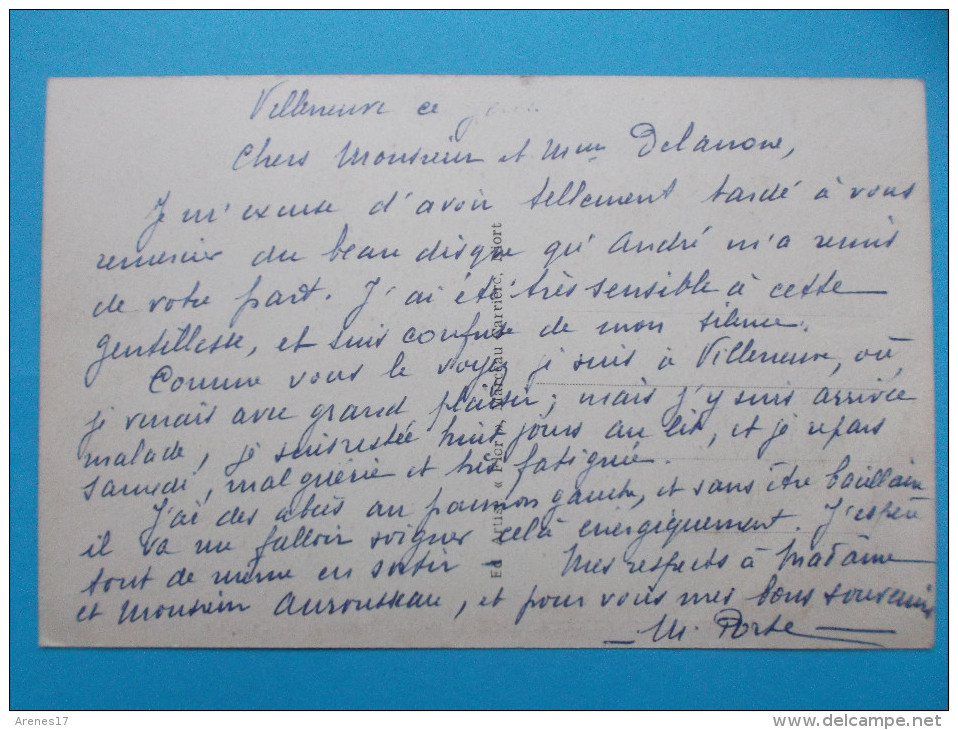 Villeneuve ce
Chers Monsieur et Mme Delanoue,
Je m'excuse d'avoir tellement tardé à vous
remercier du beau disque qu'André m'a remis
de votre part. J'ai été très sensible à cette
gentillesse, et suis confuse de mon silence.
Comme vous le voyez je suis à Villeneuve, où
je venais avec grand plaisir ; mais j'y suis arrivée
malade, je suis restée huit jours au lit, et je repars
samedi, mal guérie et très fatiguée.
J'ai des abcès au poumon gauche, et sans être bacillaire
il va me falloir soigner celà énergiquement. J'espère
tout de même en sortir - Mes respects à Madame
et Monsieur Aurousseau, et pour vous mes bons souvenirs
M. Porte
Ed. Artis. « Flor », Marceau Carrière, Niort
Arenes17
http://www.delcampe.net